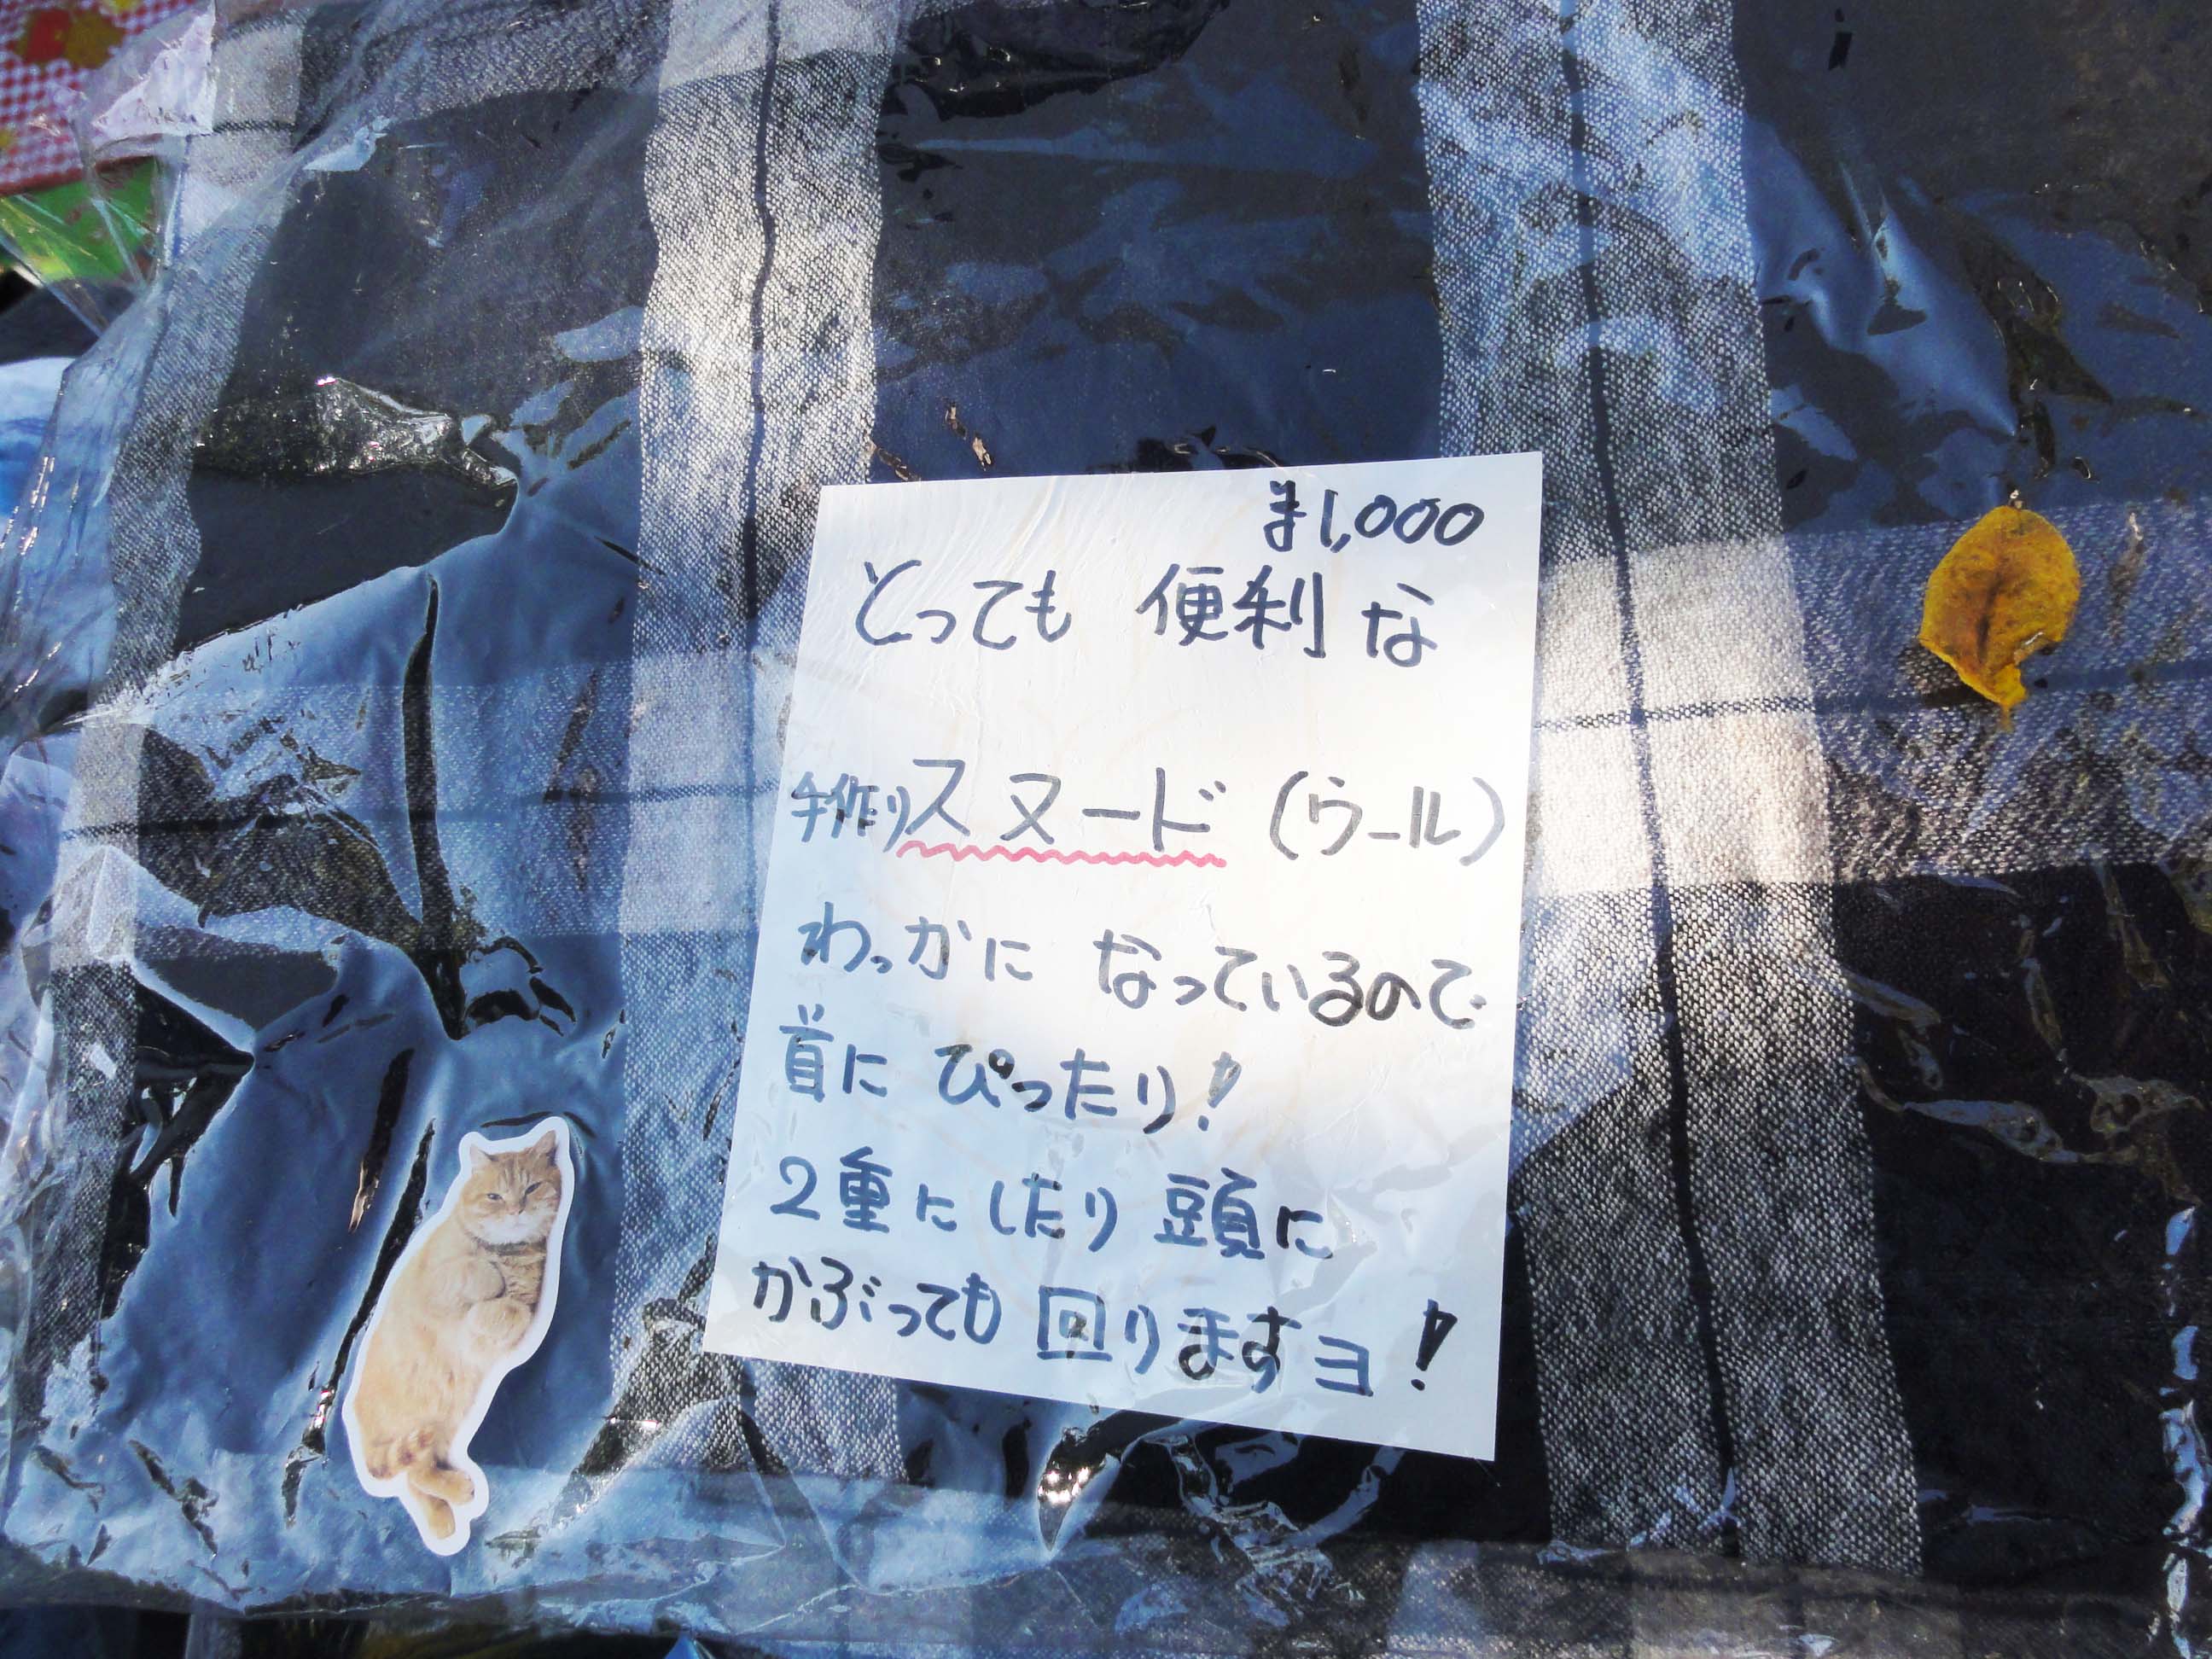 ¥1,000
とっても 便利な
手作りスヌード(ウール)
わっかに なっているので
首に ぴったり!
2重にしたり 頭に
かぶっても 回りますヨ!